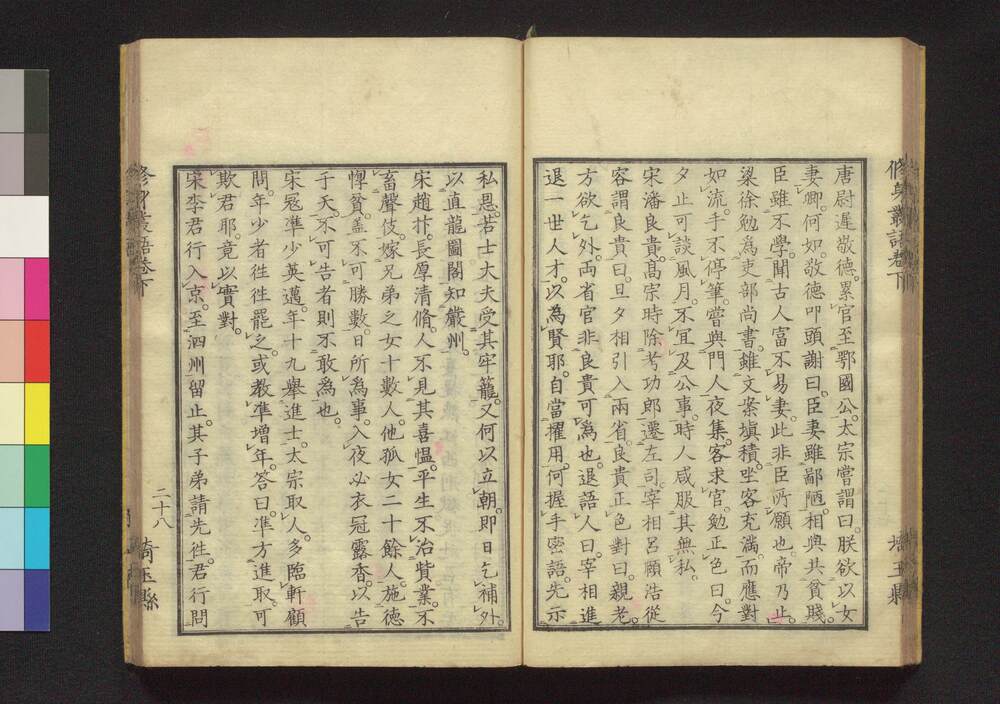 修身叢語卷下
埼玉縣
唐尉遲敬德。累官至鄂國公。太宗嘗謂曰。朕欲以女
妻卿。何如。敬德叩頭謝曰。臣妻雖鄙陋。相與共貧賤。
臣雖不學。聞古人富不易妻。此非臣所願也。帝乃止。
梁徐勉為吏部尚書。雖文案塡積。坐客充滿。而應對
如流。手不停筆。嘗與門人夜集。客求官。勉正色曰。今
夕止可談風月。不宜及公事。時人咸服其無私。
宋潘良貴。高宗時除考功郎。遷左司。宰相呂頤浩從
容謂良貴曰。旦夕相引入兩省。良貴正色對曰。親老。
方欲乞外。兩省官非良貴可為也。退語人曰。宰相進
退一世人才。以為賢耶。自當擢用。何握手密語。先示
私恩。若士大夫受其牢籠。又何以立朝。即日乞補外。
以直龍圖閣知嚴州。
宋趙抃。長厚清脩。人不見其喜慍。平生不治貲業。不
畜聲伎。嫁兄弟之女十數人。他孤女二十餘人。施德
惸貧。盖不可勝數。日所為事。入夜必衣冠露香。以告
于天。不可告者則不敢為也。
宋寇準少英邁。年十九舉進士。太宗取人。多臨軒顧
問。年少者往往罷之。或教準增年。答曰。準方進取。可
欺君耶。竟以實對。
宋李君行入京。至泗州留止。其子弟請先往。君行問
修身叢語卷下
二十八
埼玉縣